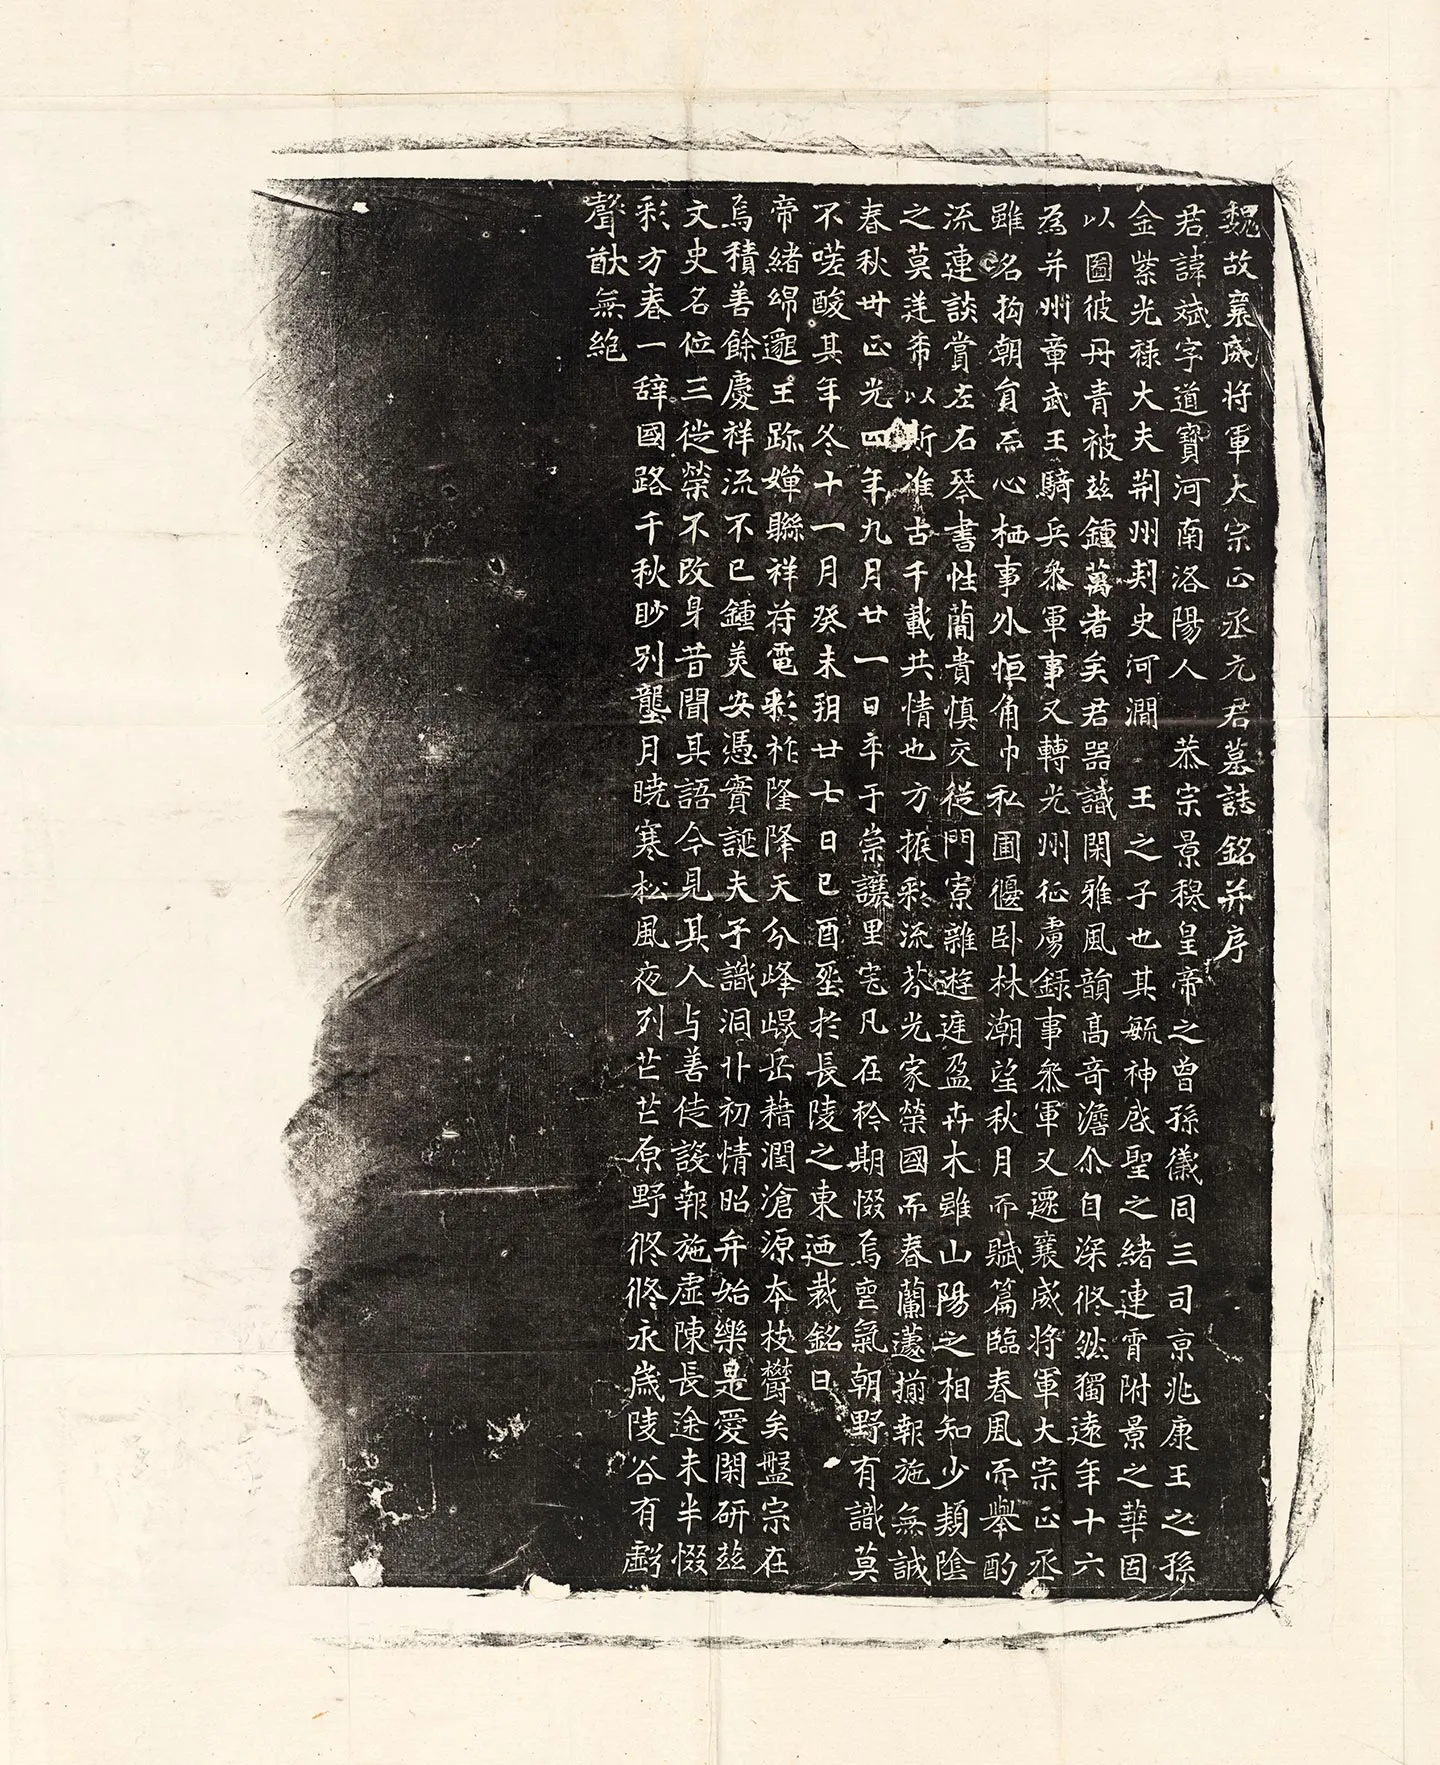 魏故襄威将軍大宗正丞元君墓誌銘并序
君諱斌字道寶河南洛陽人 恭宗景穆皇帝之曾孫儀同三司京兆康王之孫
金紫光禄大夫荆州刾史河澗 王之子也其毓神啓聖之緒連霄附景之華固
以圖彼丹青被玆鍾萬者矣君器識閑雅風韻高奇澹尒自深倐然獨遠年十六
為并州章武王騎兵叅軍事又轉光州征虜録事叅軍又遷襄威将軍大宗正丞
雖名拘朝員而心栖事外恒角巾私圃偃卧林潮望秋月而賦篇臨春風而舉酌
流連談賞左右琴書性蕳貴慎交從門寮雜遊逕盈卉木雖山陽之相知少類陰
之莫逹希以斯准古千載共情也方振彩流芬光家榮國而春蘭遽揃報施無誠
春秋卅正光四年九月廿一日卒于崇讓里宅凡在衿期惙焉亶氣朝野有識莫
不嗟酸其年冬十一月癸未朔廿七日己酉堲扵長陵之東迺裁銘曰
帝緒綿邈王跡嬋聯祥符電彩祚隆降天分峰崿岳藉潤滄源本枝欝矣盤宗在
焉積善餘慶祥流不已鍾羙安憑實誕夫子識洞丱初情昭弁始樂是愛閑研玆
文史名位三徙榮不改身昔聞其語今見其人与善徒設報施虛陳長途未半惙
彩方春一辞國路千秋眇别壟月曉寒松風夜列芒芒原野倐倐永嵗陵谷有虧
聲猷無絶